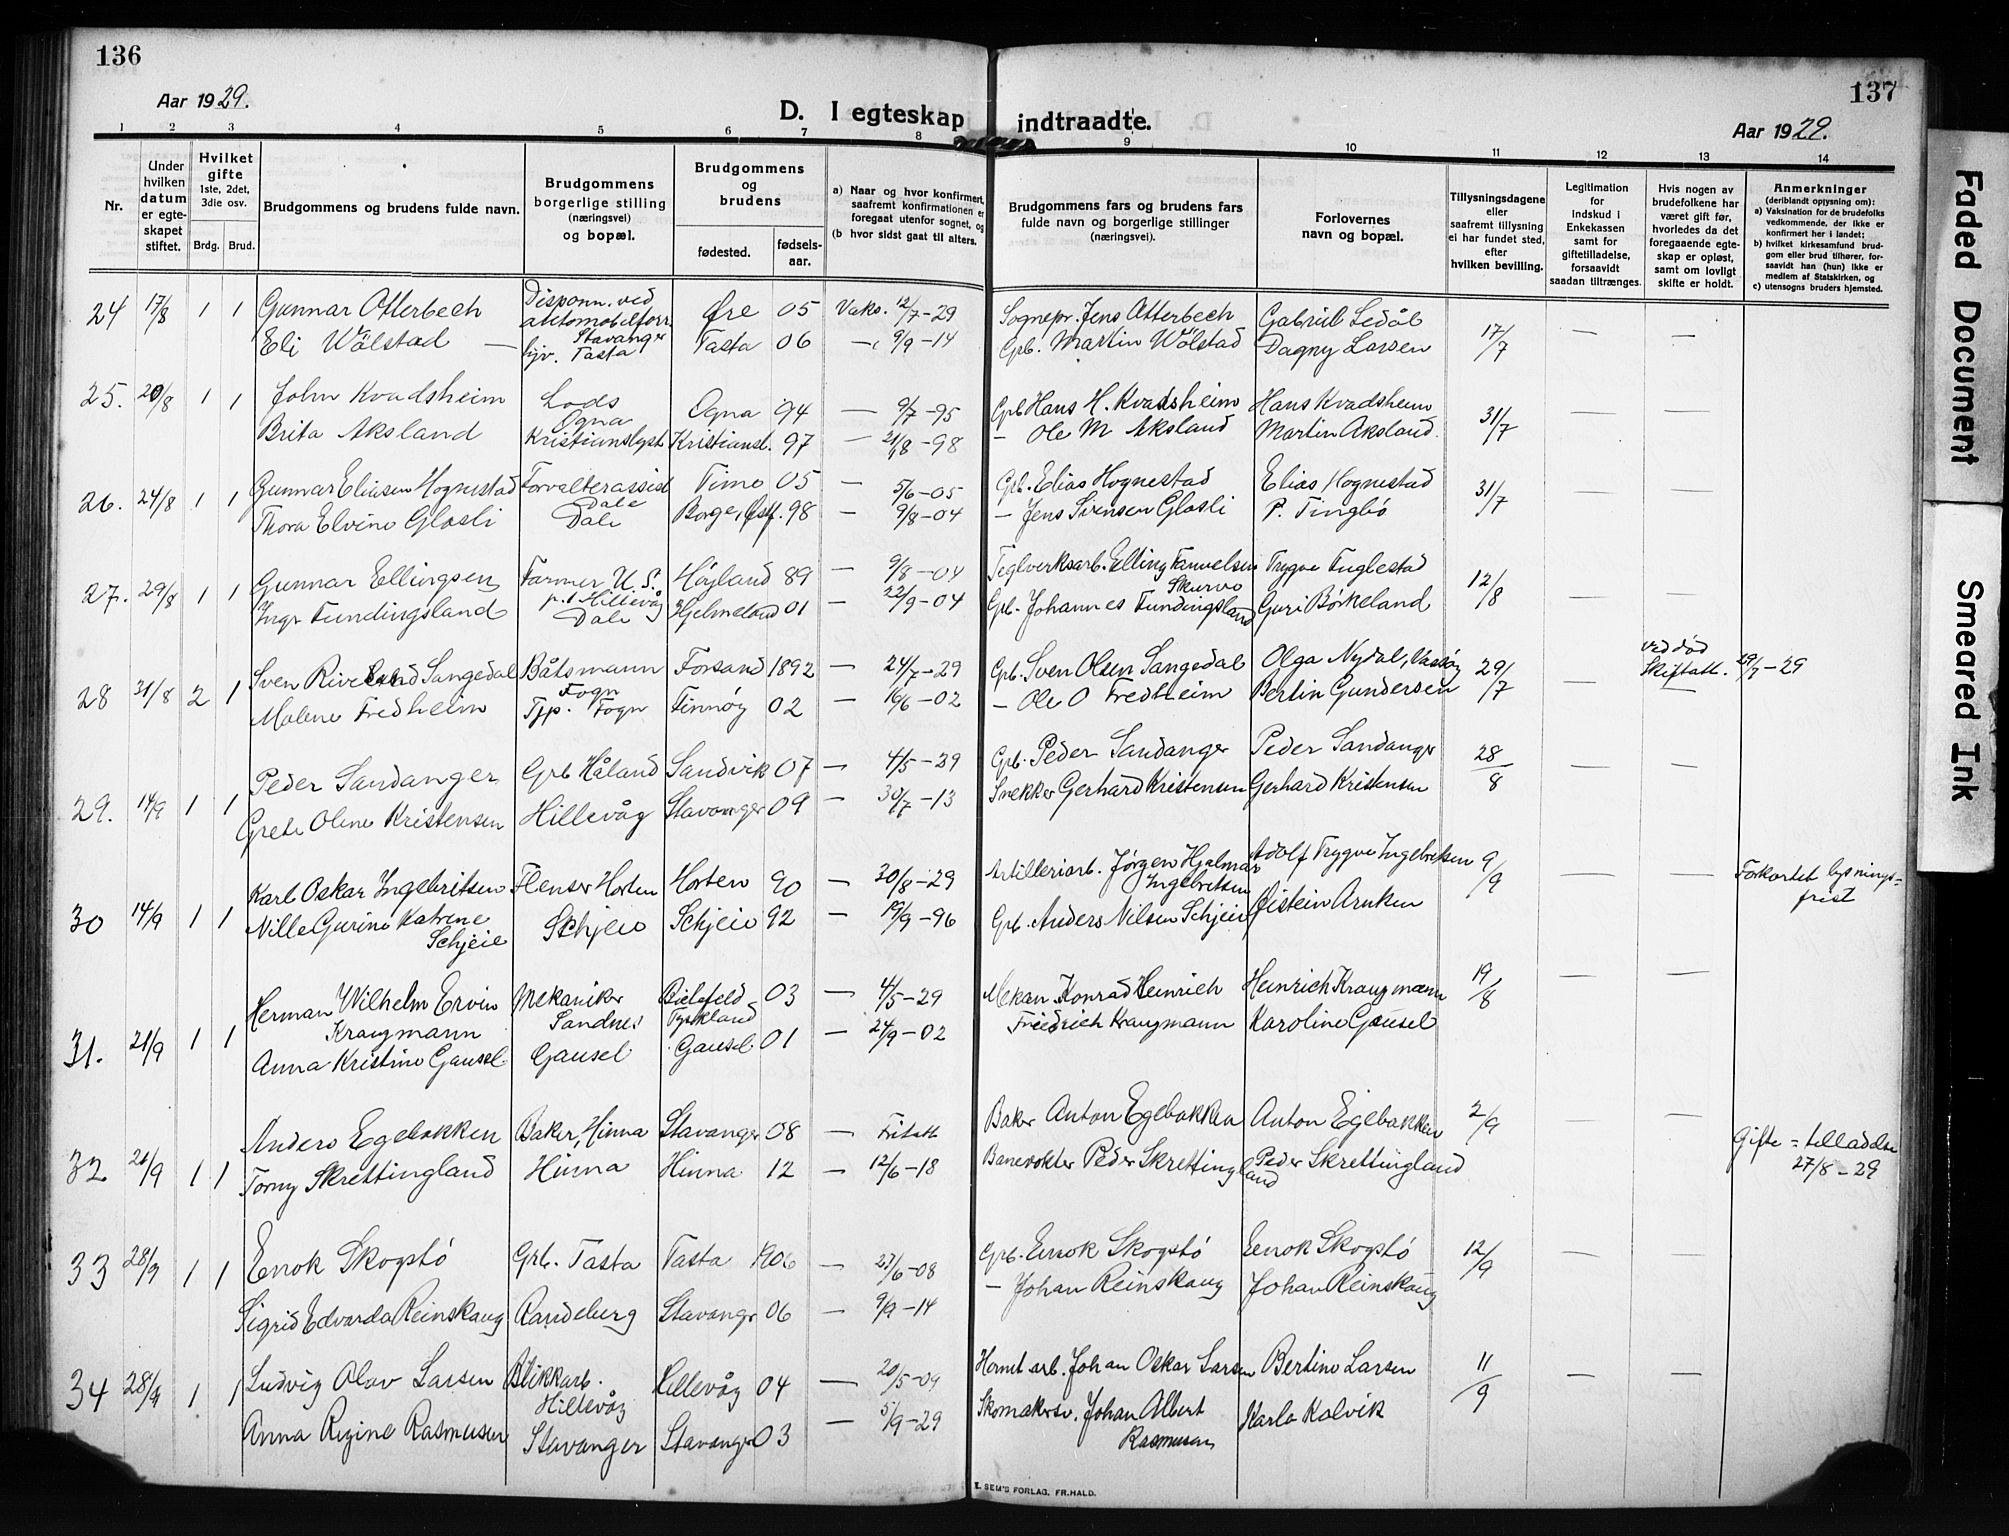 136
137
Aar 1929.
D. I egteskap indtraadte.
Aar 1929.
1 2 3 4 5 6 7 8 9 10 11 12 13 14
Nr.
Under hvilken datum er egteskapet stiftet.
Hvilket gifte 1ste, 2det, 3die osv.
Brdg. Brud.
Brudgommens og brudens fulde navn.
Brudgommens borgerlige stilling (næringsvei) og bopæl.
Brudgommens og brudens
fødested.
fødsels-aar.
a) Naar og hvor konfirmert, saafremt konfirmationen er foregaat utenfor sognet, og
(b hvor sidst gaat til alters.
Brudgommens fars og brudens fars fulde navn og borgerlige stillinger (næringsvei).
Forlovernes navn og bopæl.
Tillysningsdagene eller saafremt tillysning ei har fundet sted, efter hvilken bevilling.
Legitimation for Indskud i Enkekassen samt for giftetilladelse, forsaavidt saadan tiltrænges.
Hvis nogen av brudefolkene har været gift før, hvorledes da det foregaaende egteskap er opløst, samt om lovligt skifte er holdt.
Anmerkninger (deriblandt opjysning om):
a) Vaksination for de brudefolks vedkommende, der ikke er konfirmert her i landet;
b) hvilket kirkesamfund brudgom eller brud tilhører, forsaavidt han (hun) ikke er medlem af Statskirken, og
c) utensogns bruders hjemsted.
24 17/8 1 1 Gunnar Otterbech Disponn. ved automobilforr. Stavanger Øre 05 Vaks. 12/7-29 Sognepr. Jens Otterbech Gabriel Ledål 17/7 — —
Eli Wölstad — Hjv. Tasta Tasta 06 — 9/9-14 Grb. Martin Wölstad Dagny Larsen
25. 20/8 1 1 John Kvadsheim Lods Ogna Ogna 94 — 9/7-95 Grb Hans H. Kvadsheim Hans Kvadsheim 31/7 — —
Brita Aksland Kristianslyst Kristiansl. 97 — 21/8-98 — Ole M Aksland Martin Aksland.
26. 24/8 1 1 Gunnar Eliasen Hognestad Forvalterassist Dale Time 05 — 5/6-05 Grb. Elias Hognestad Elias Hognestad 31/7 — —
Thora Elvine Glosli Dale Borge, Østf. 98 — 9/8-04 — Jens Sörensen Glosli P. Tingbö
27. 29/8 1 1 Gunnar Ellingsen Farmer U.S. p.t Hillevåg Höyland 89 — 9/8-04 Teglverksarb. Elling Skurvo Trygve Fuglestad 12/8 — —
Inga Fundingsland Dale Hjelmeland 01 — 22/9-04 Grb. Johannes Fundingsland Guri Börkeland
28 31/8 2 1 Sven Sangedal Båtsmann Fogn Forsand 1892 — 24/7-29 Grb. Sven Olsen Sangedal Olga Nydal, 29/7 — ved död Skiftatt. 29/7-29
Malene Fredheim Tjp. Fogn Finnöy 02 — 16/6-02 — Ole O Fredheim Bertin Gundersen —
29. 14/9 1 1 Peder Sandanger Grb Håland Sandvik 07 — 4/5-29 Grb. Peder Sandanger Peder Sandanger 28/8 — —
Grete Oline Kristensen Hillevåg Stavanger 09 — 30/7-13 Snekker Gerhard Kristensen Gerhard Kristensen
30 14/9 1 1 Karl Oskar Ingebritsen Flenser Horten Horten 90 — 30/8-29 Artilleriarb. Jörgen Hjalmar Ingebritsen Adolf Trygve Ingebritsen 9/9 — — Forkortet lysnings=frist
Nille Gurine Katrine Schjeie Schjeie Schjeie 92 — 19/9-96 Grb. Anders Nilsen Schjeie Øistein Aruken
31. 21/9 1 1 Herman Wilhelm Ervin Kraugmann Mekaniker Sandnes Bielefeld Tyskland 03 — 4/5-29 Mekan. Konrad Heinrich Friedrich Kraugmann Heinrich Kraugmann 19/8 — —
Anna Kristine Gausel Gausel Gausel 01 — 24/9-02 Karoline Gausel
32 21/9 1 1 Anders Egebakken Baker, Hinna Stavanger 08 — Fritatt Baker Anton Egebakken Anton Egebakken 2/9 — Gifte=tilladelse 27/8-29
Torny Skrettingland Hinna Hinna 12 — 12/6-18 Banevokter Peder Skrettingland Peder Skrettingland
33 28/9 1 1 Enok Skogstö Grb. Tasta Tasta 1906 — 23/6-08 Grb. Enok Skogstö Enok Skogstö 12/9 — —
Sigrid Edvarda Reinskaug Randeberg Stavanger 06 — 9/9-14 — Johan Reinskaug Johan Reinskaug
34 28/9 1 1 Ludvig Olav Larsen Blikkarb. Hillevåg Hillevåg 04 — 20/5-09 Hermt arb. Johan Oskar Larsen Bertine Larsen 11/9 — —
Anna Regine Rasmussen Stavanger Stavanger 03 — 5/9-29 Skomakersv. Johan Albert Rasmussen Karlo Kalvik
E. SEM'S FORLAG, FR.HALD.
Faded Document
Smeared Ink